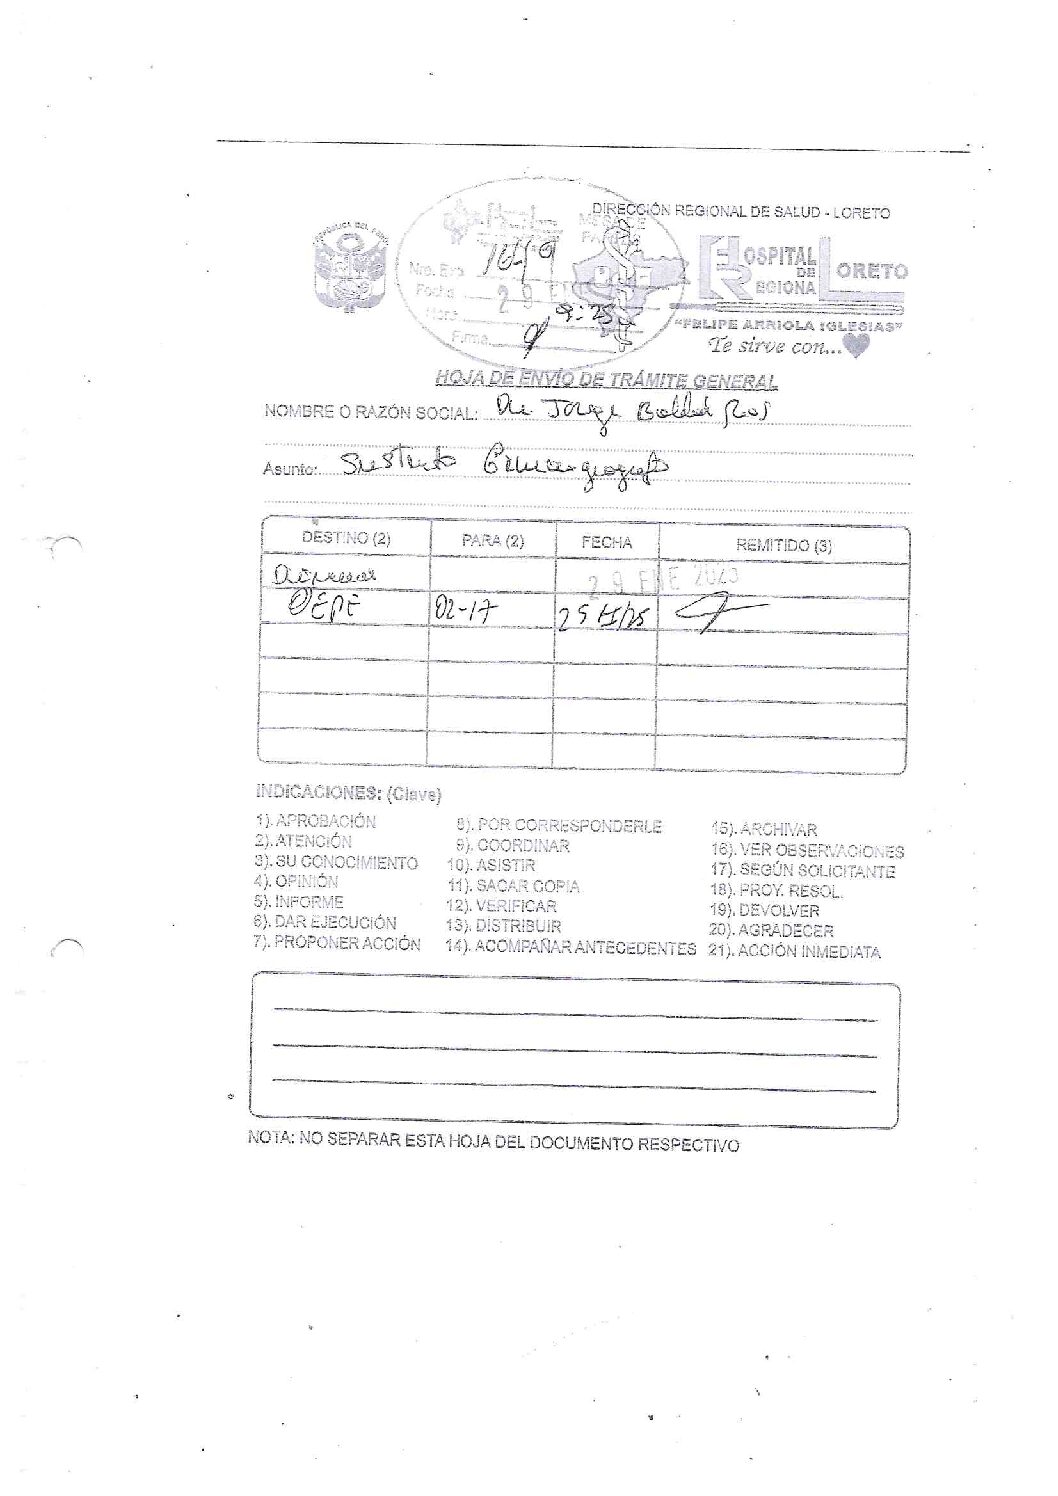 DIRECCIÓN REGIONAL DE SALUD - LORETO
REPÚBLICA DEL PERÚ
MESA DE PARTES
HOSPITAL REGIONAL DE LORETO
Nro. Exp
Fecha 29 ENE
Hora 9:25
Firma
"FELIPE ARRIOLA IGLESIAS"
Te sirve con...
HOJA DE ENVÍO DE TRÁMITE GENERAL
NOMBRE O RAZÓN SOCIAL: Jorge
Asunto: Sustento
DESTINO (2) PARA (2) FECHA REMITIDO (3)
29 ENE 2025
OEPE 02-17
INDICACIONES: (Clave)
1). APROBACIÓN
2). ATENCIÓN
3). SU CONOCIMIENTO
4). OPINIÓN
5). INFORME
6). DAR EJECUCIÓN
7). PROPONER ACCIÓN
8). POR CORRESPONDERLE
9). COORDINAR
10). ASISTIR
11). SACAR COPIA
12). VERIFICAR
13). DISTRIBUIR
14). ACOMPAÑAR ANTECEDENTES
15). ARCHIVAR
16). VER OBSERVACIONES
17). SEGÚN SOLICITANTE
18). PROY. RESOL.
19). DEVOLVER
20). AGRADECER
21). ACCIÓN INMEDIATA
NOTA: NO SEPARAR ESTA HOJA DEL DOCUMENTO RESPECTIVO